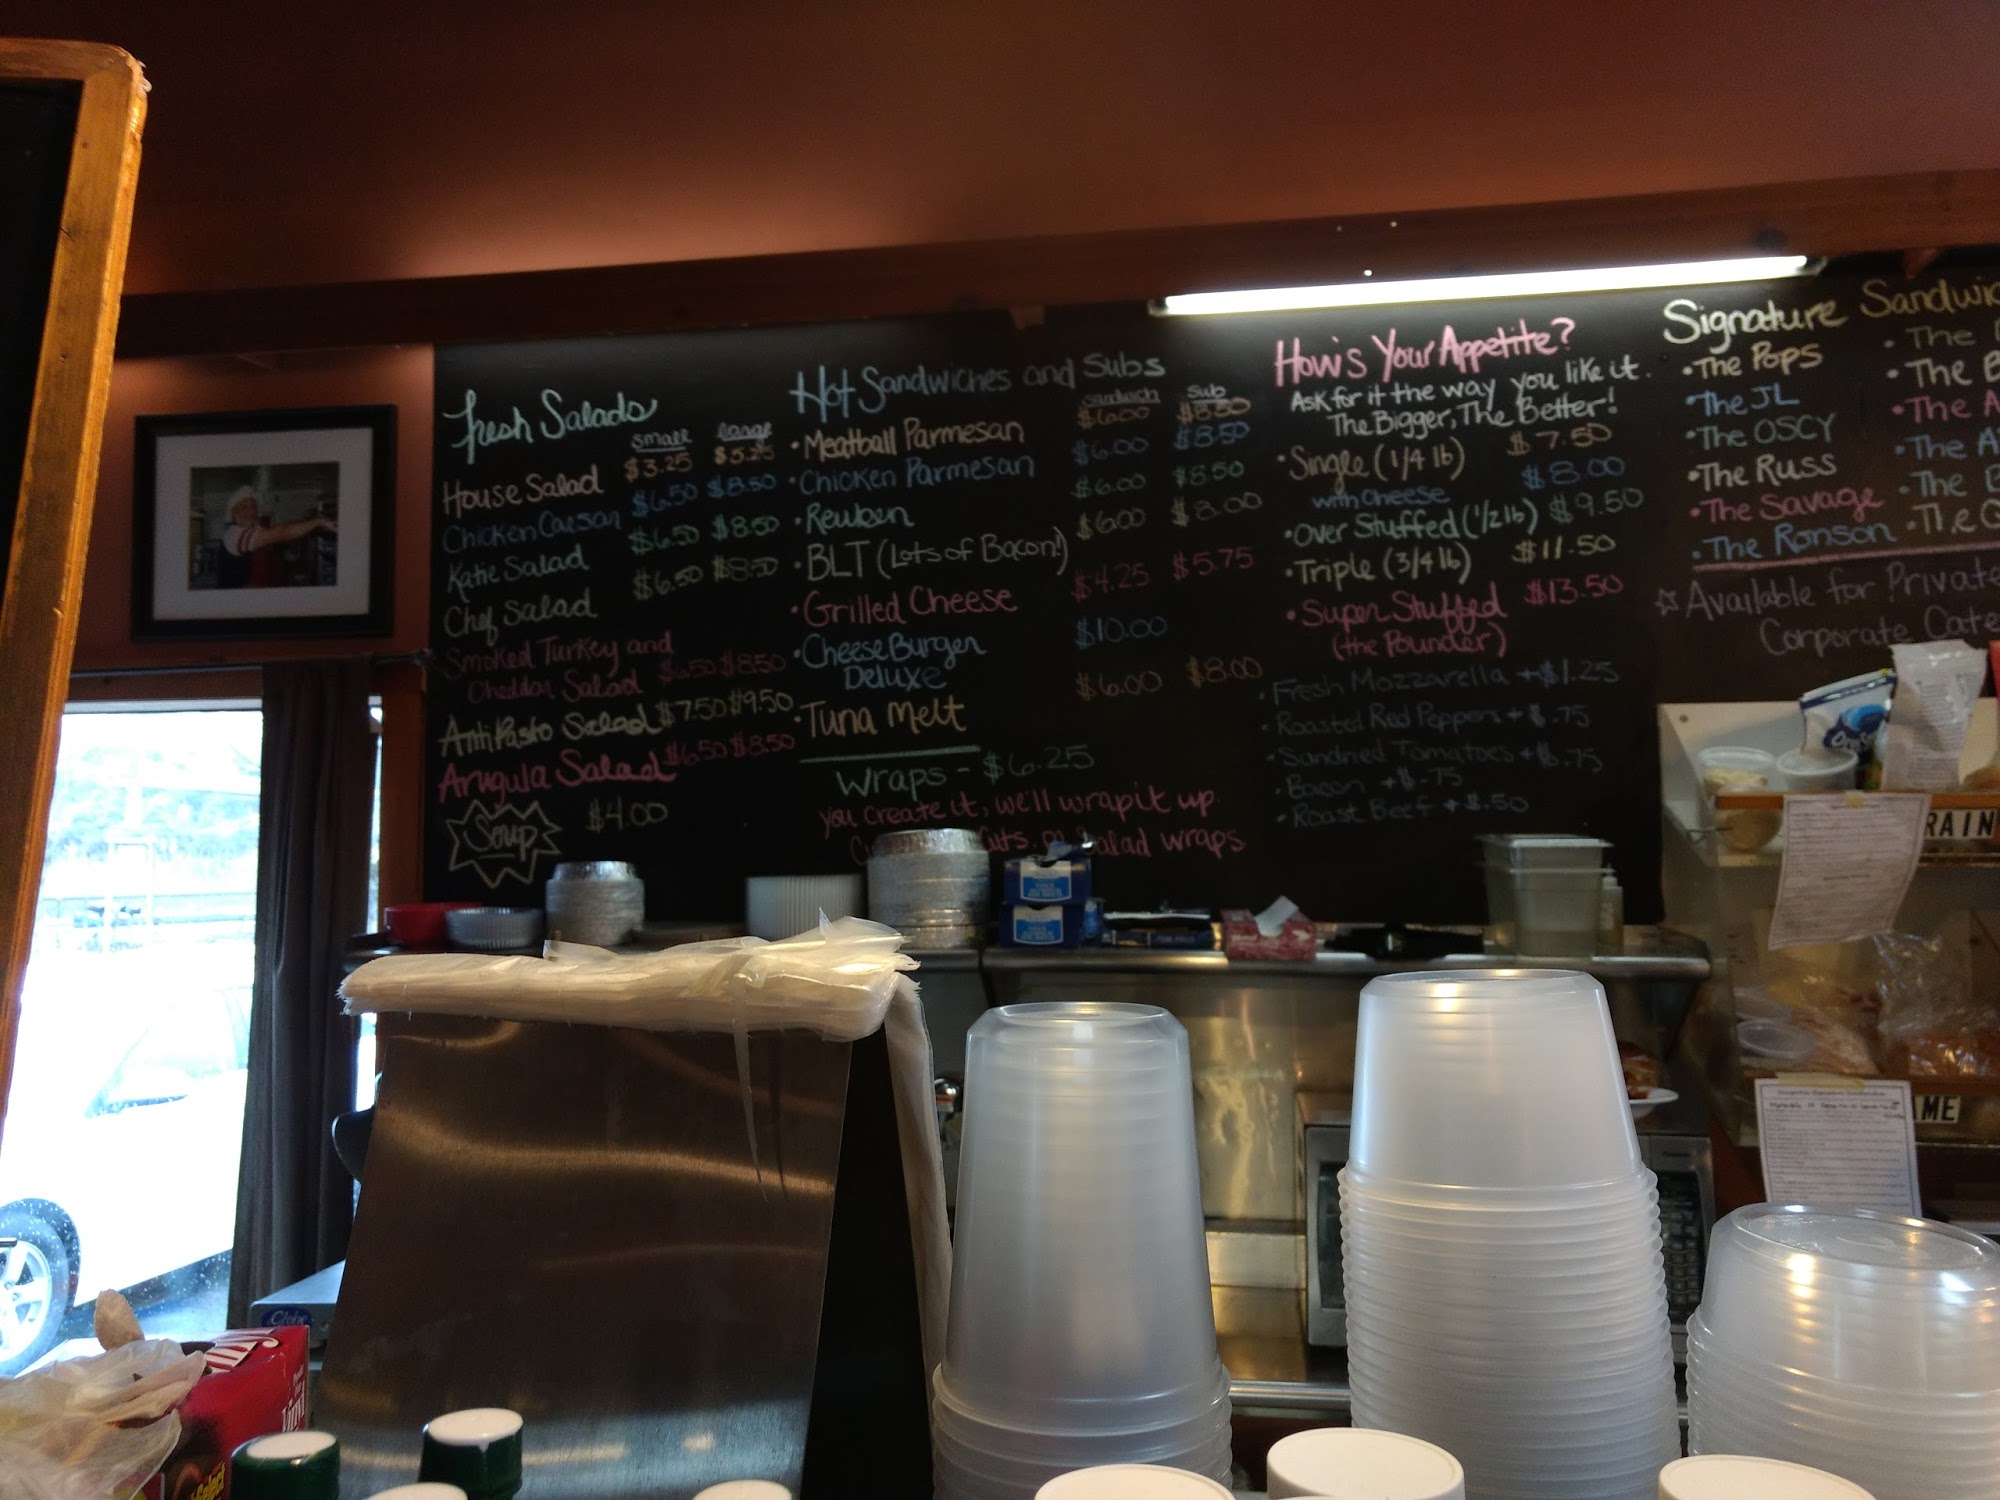 Fresh Salads
small large
House Salad $3.25 $5.25
Chicken Caesar $6.50 $8.50
Katie Salad $6.50 $8.50
Chef Salad $6.50 $8.50
Smoked Turkey and
Cheddar Salad $6.50 $8.50
AntiPasto Salad $7.50 $9.50
Arugula Salad $6.50 $8.50
Soup $4.00
Hot Sandwiches and Subs
sandwich Sub
• Meatball Parmesan $6.00 $8.50
• Chicken Parmesan $6.00 $8.50
• Reuben $6.00 $8.50
• BLT (Lots of Bacon!) $6.00 $8.00
• Grilled Cheese $4.25 $5.75
• Cheese Burger $10.00
Deluxe
• Tuna Melt $6.00 $8.00
Wraps - $6.25
you create it, we'll wrap it up.
Salad wraps
How's Your Appetite?
Ask for it the way you like it.
The Bigger, The Better!
• Single (1/4 lb) $7.50
with cheese $8.00
• Over Stuffed (1/2 lb) $9.50
• Triple (3/4 lb) $11.50
• Super Stuffed $13.50
(the Pounder)
• Fresh Mozzarella +$1.25
• Roasted Red Peppers +$.75
• Sundried Tomatoes +$.75
• Bacon +$.75
• Roast Beef +$.50
Signature Sandwic
• The Pops
• The JL
• The OSCY
• The Russ
• The Savage
• The Ronson
• The
• The B
• The A
• The A
• The B
• The
☆ Available for Private
Corporate Cate
RAIN
ME
Globe
Vinyl